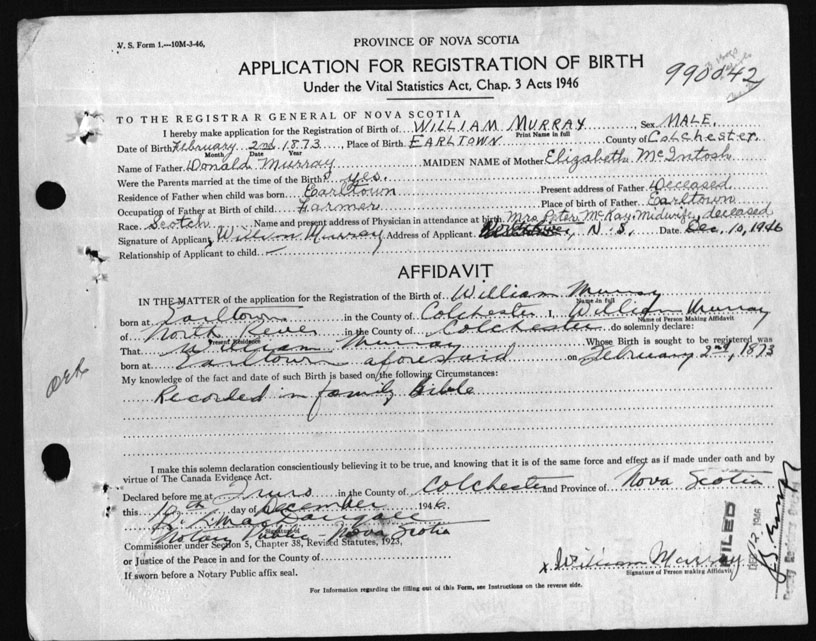 V. S. Form 1.—10M-3-46,
PROVINCE OF NOVA SCOTIA
APPLICATION FOR REGISTRATION OF BIRTH
Under the Vital Statistics Act, Chap. 3 Acts 1946
990042
TO THE REGISTRAR GENERAL OF NOVA SCOTIA
I hereby make application for the Registration of Birth of WILLIAM MURRAY Sex MALE.
Print Name in full
Date of Birth February 2nd 1873 Place of Birth EARLTOWN County of Colchester.
Month Date Year
Name of Father Donald Murray MAIDEN NAME of Mother Elizabeth McIntosh
Were the Parents married at the time of the Birth? yes.
Residence of Father when child was born Earltown Present address of Father Deceased
Occupation of Father at Birth of child Farmer Place of birth of Father Earltown
Race Scotch Name and present address of Physician in attendance at birth Mrs Peter McKay. Midwife, deceased
Signature of Applicant William Murray Address of Applicant N. S. Date Dec. 10, 1946
Relationship of Applicant to child
AFFIDAVIT
IN THE MATTER of the application for the Registration of Birth of William Murray
Name in full
born at Earltown in the County of Colchester I, William Murray
Name of Person Making Affidavit
of North River in the County of Colchester do solemnly declare:
Present Residence
That William Murray Whose Birth is sought to be registered was
born at Earltown aforesaid on February 2nd, 1873
My knowledge of the fact and date of such Birth is based on the following Circumstances:
Recorded in family Bible
I make this solemn declaration conscientiously believing it to be true, and knowing that it is of the same force and effect as if made under oath and by
virtue of The Canada Evidence Act.
Declared before me at Truro in the County of Colchester and Province of Nova Scotia
this 10th day of December 1946.
Notary Public Nova Scotia
Commissioner under Section 5, Chapter 38, Revised Statutes, 1923,
or Justice of the Peace in and for the County of
If sworn before a Notary Public affix seal.
x William Murray
Signature of Person making Affidavit
FILED
DEC 12 1946
For Information regarding the filling out of this Form, see Instructions on the reverse side.